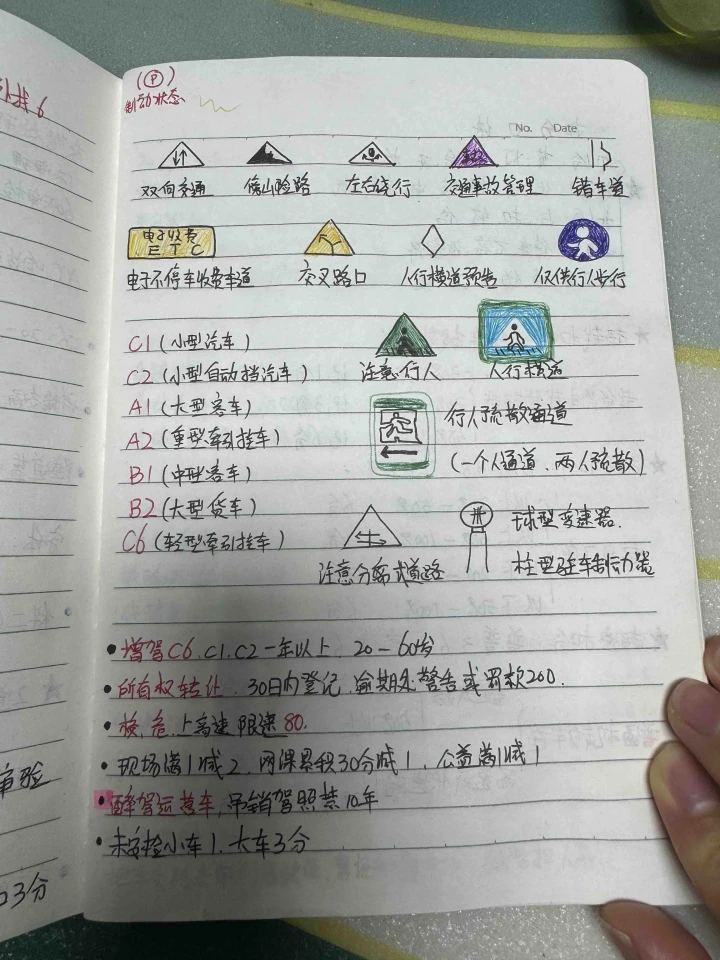 (Ⓟ)
制动状态
No. Date
双向交通 傍山险路 左右绕行 交通事故管理 错车道
电子收费
ETC
电子不停车收费车道 交叉路口 人行横道预告 仅供行人步行
C1(小型汽车)
C2(小型自动挡汽车) 注意行人 人行横道
A1(大型客车) 行人疏散通道
A2(重型牵引挂车)
B1(中型客车) (一个人通道、两人疏散)
B2(大型货车) 球型变速器.
C6(轻型牵引挂车) 注意分离式道路 柱型驻车制动器
• 增驾C6.C1.C2一年以上 20-60岁
• 所有权转让.30日内登记.逾期处警告或罚款200.
• 校.危.上高速限速80.
• 现场满1减2.网课累积30分减1.公益满1减1
• 醉驾运营车,吊销驾照禁10年
• 未安检小车1.大车3分
审验
3分